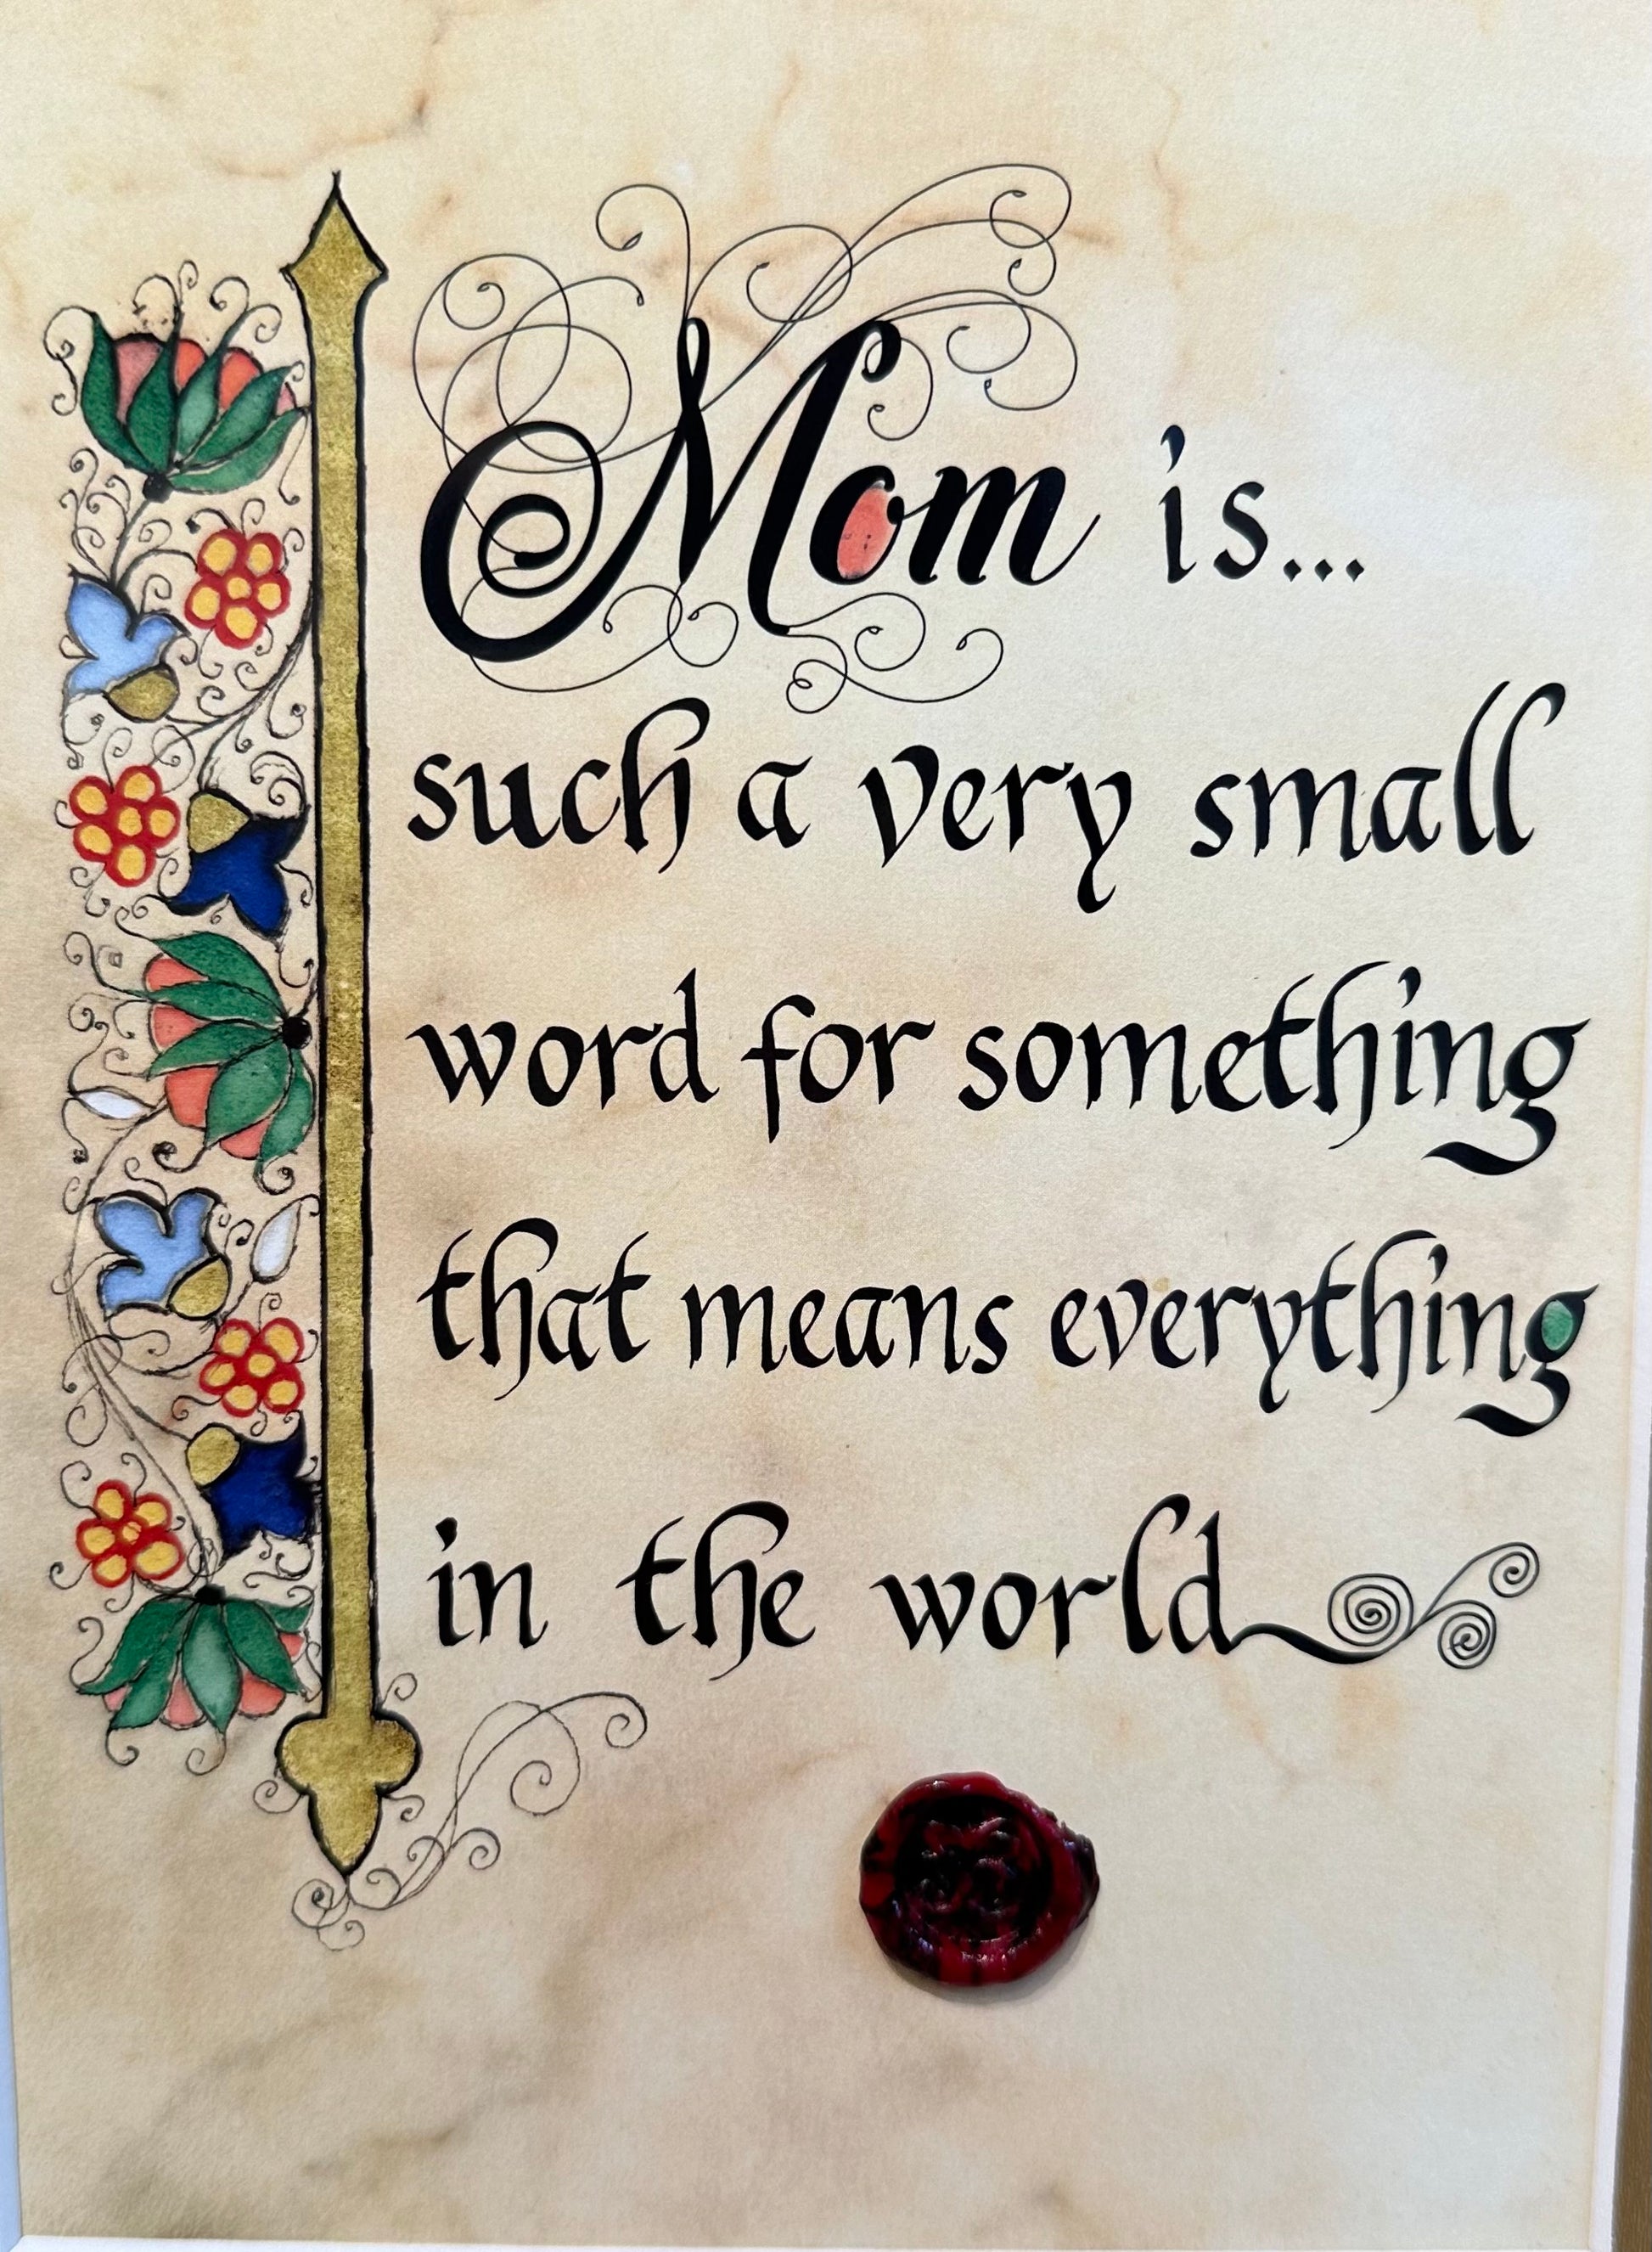 Mom is...
such a very small
word for something
that means everything
in the world